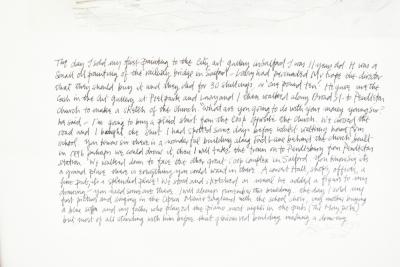 The day I sold my first painting to the City art gallery in Salford I was 11 years old. It was a
small oil painting of the railway bridge in Salford - Lowry had persuaded Mr. Hope the director
that they should buy it and they did for 30 shillings, or 'one pound ten'. He gave me the
cash in the art gallery at Peel Park and Lowry and I then walked along Broad St. to Pendleton
Church to make a sketch of the Church. "What are you going to do with your money young sir"
he said - I'm going to buy a plaid shirt from the Coop opposite the church. We crossed the
road and I bought the shirt I had spotted some days before whilst walking home from
school. You know sir there is a wonderful building along here behind the church built
in 1896 perhaps we could draw it and then I will take the train on to Pendlebury from Pendleton
station." We walked down to face the other great Coop complex in Salford. You know its
a grand place there is everything you could want in there. A covert stall, shops, offices, a
fine pub, its a splendid place! We stood and sketched as usual he added a figure to my
drawing - you need someone there. I will always remember this building, the day I sold my
first picture and singing in the Opera Merrie England with the school choir, my mother buying
a blue sofa and my father who played the piano most nights in the pubs
but most of all standing with him before that glorious red building making a drawing.